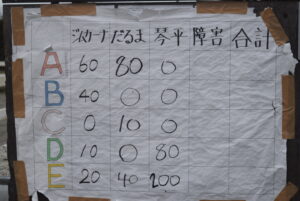 ジムカーナ だるま 琴平 障害 合計
A 60 80 0
B 40 0 0
C 0 10 0
D 10 0 80
E 20 40 200